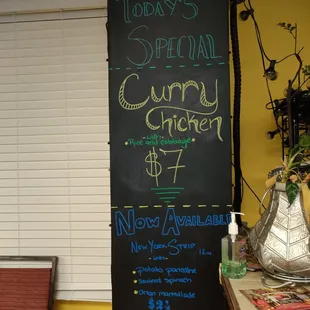 TODAY'S
SPECIAL
Curry
Chicken
with
Rice and cabbage
$7
NOW AVAILABLE
NEW YORK STRIP 12oz
with
• potato pancake
• Sauteed spinach
• Onion marmalade